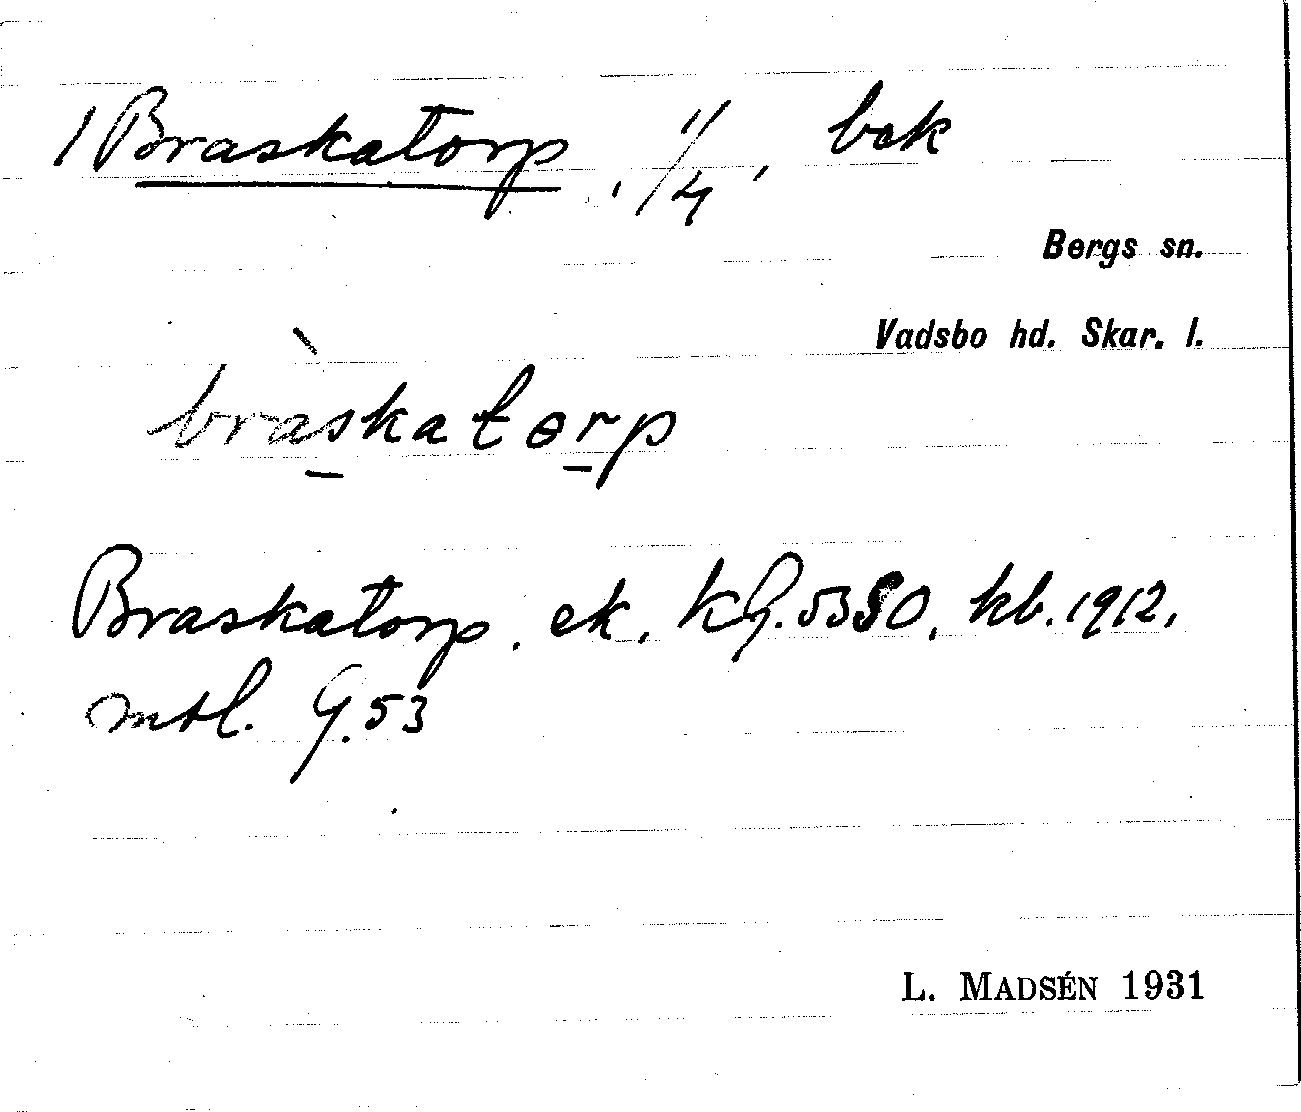 1 Braskatorp, 1/4, bek
Bergs sn.
Vadsbo hd. Skar. l.
bràskatorp
Braskatorp. ek. KG. 5380. kb. 1912.
mtl. G. 53
L. MADSÉN 1931